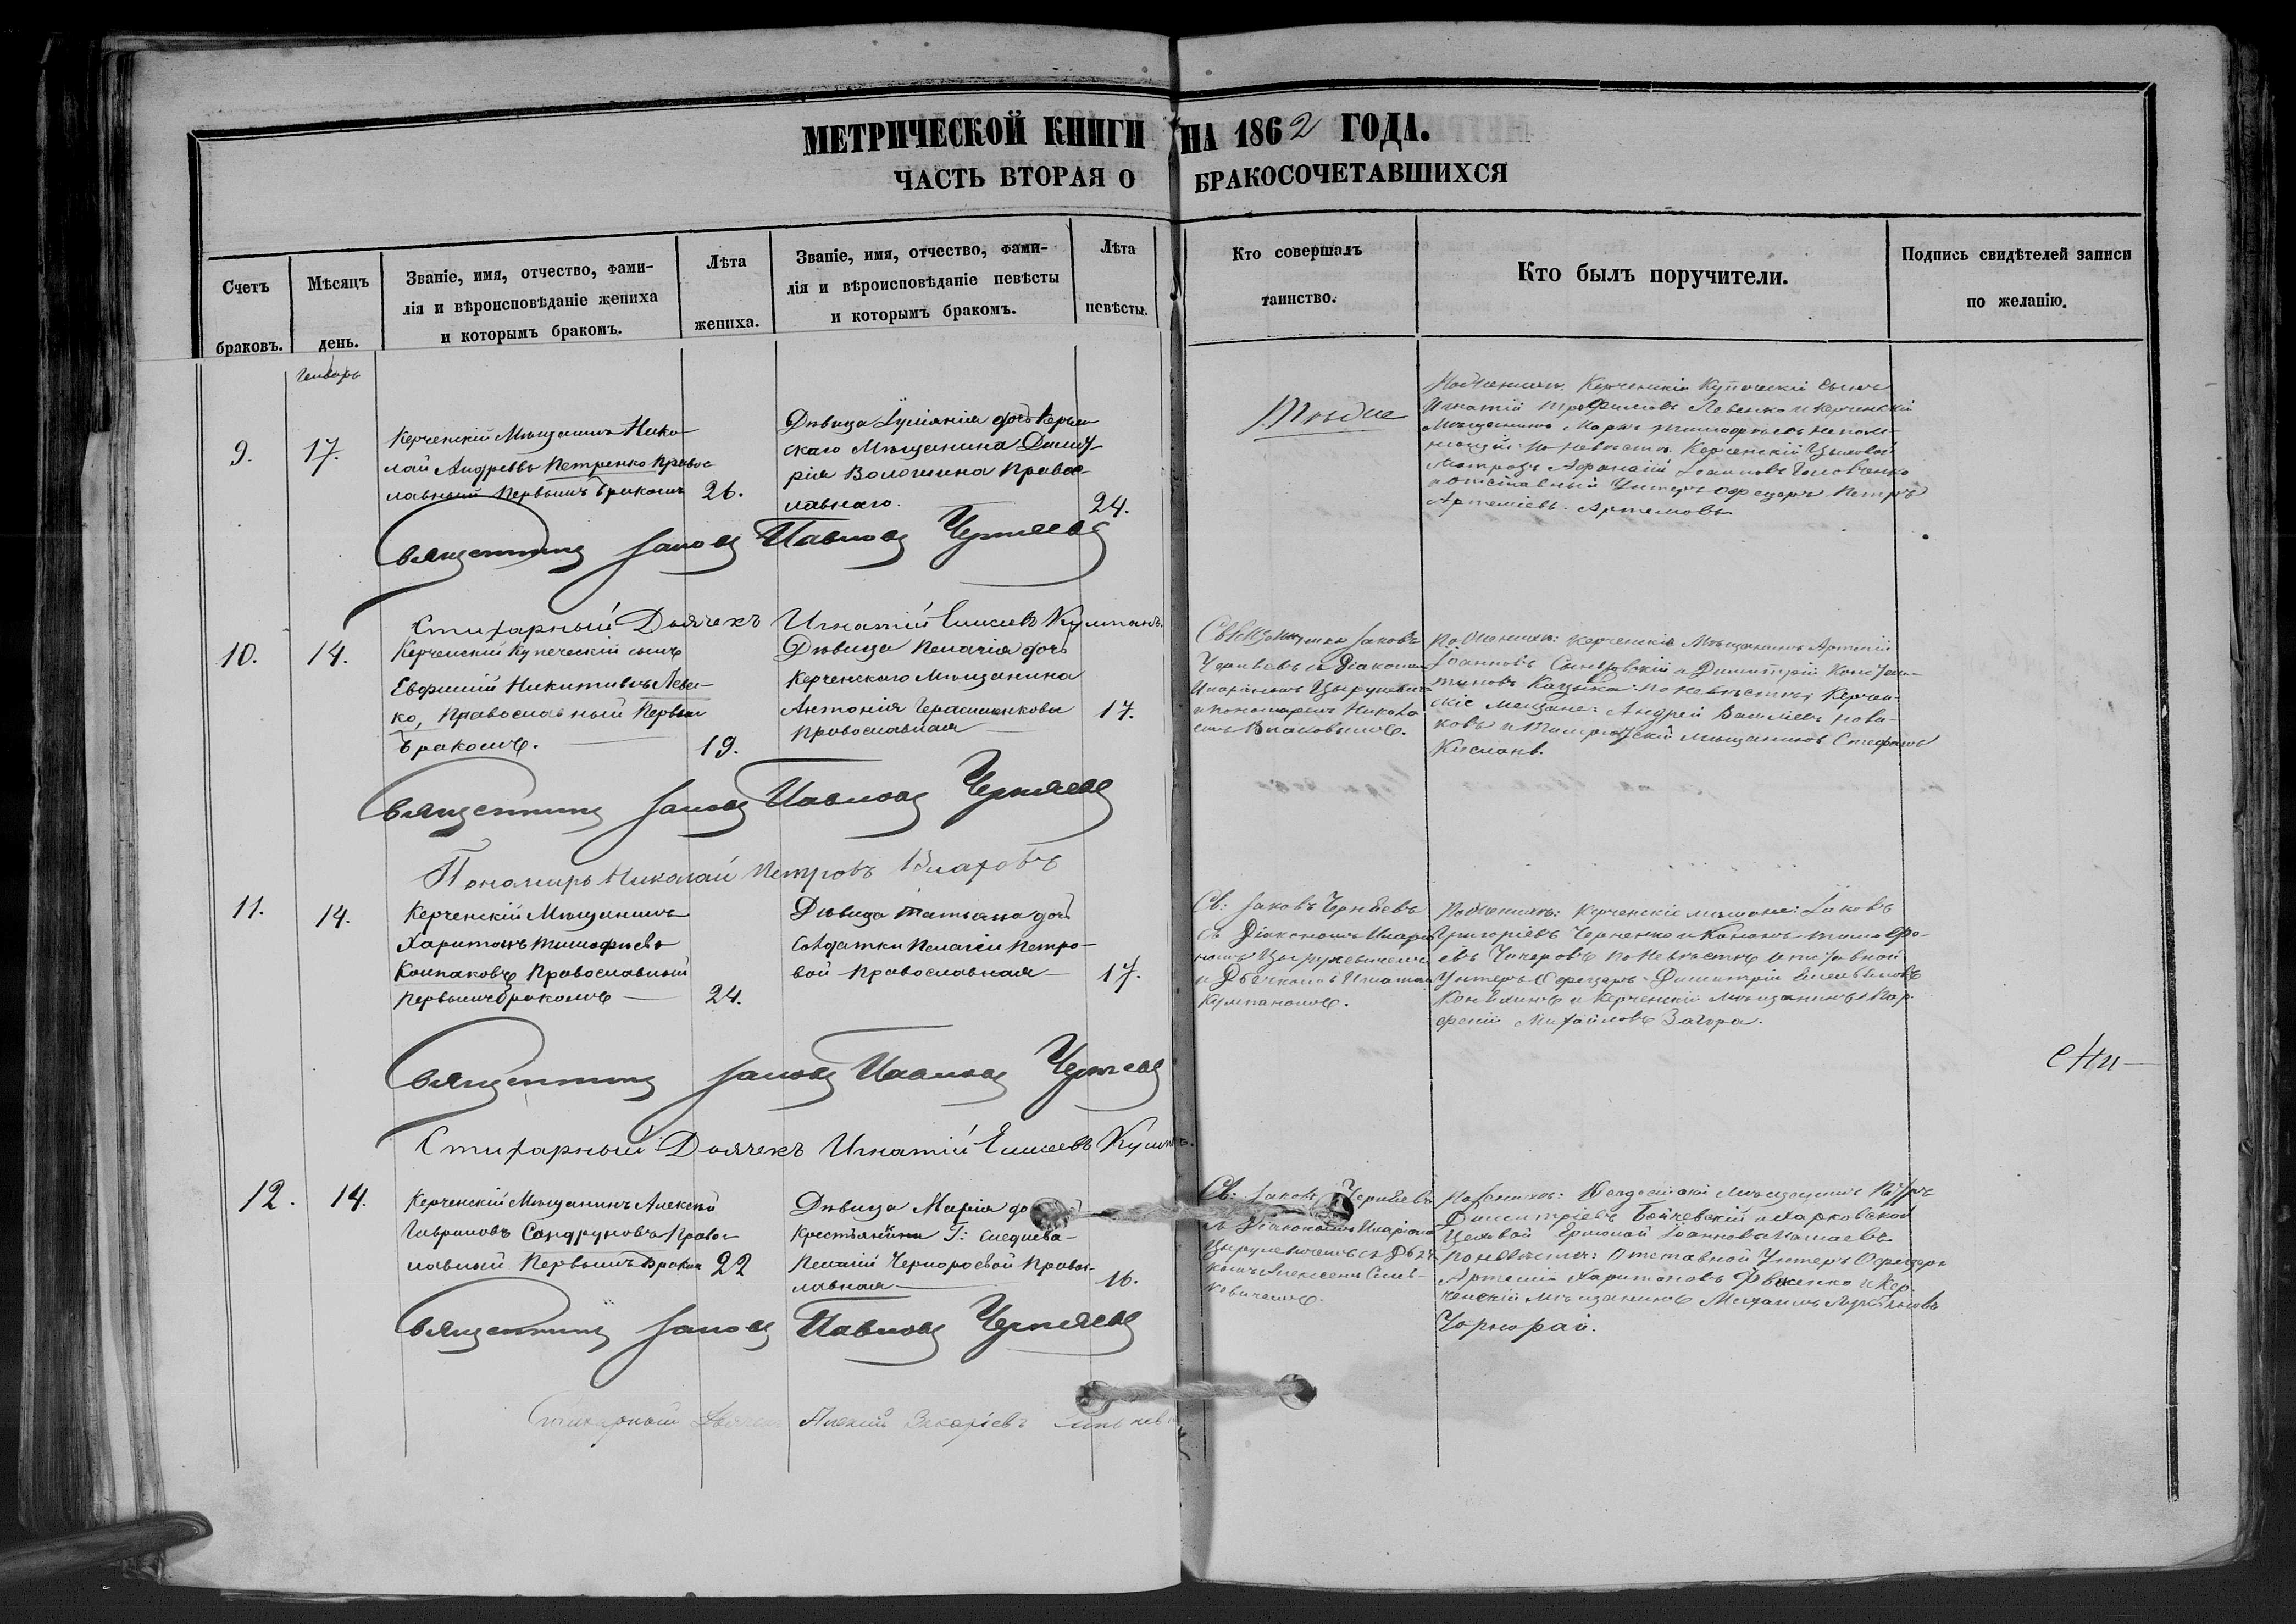 МЕТРИЧЕСКОЙ КНИГИ НА 1862 ГОДА.
ЧАСТЬ ВТОРАЯ О БРАКОСОЧЕТАВШИХСЯ
Счетъ
браковъ.
Мѣсяцъ
день.
Званіе, имя, отчество, фами-
лія и вѣроисповѣданіе жениха
и которымъ бракомъ.
Лѣта
жениха.
Званіе, имя, отчество, фами-
лія и вѣроисповѣданіе невѣсты
и которымъ бракомъ.
Лѣта
невѣсты.
Кто совершалъ
таинство.
Кто былъ поручители.
Подпись свидѣтелей записи
по желанію.
Генварь
9.
17.
Керченскій Мѣщанинъ Нико-
лай Андреевъ Петренко Правос-
лавный Первымъ бракомъ
26.
Дѣвица дочь Керчен
скаго Мѣщанина Димит
рія Волошина Правос-
лавнаго.
24.
Тѣже
Керченскій Купеческій Сынъ
Игнатій Трофимовъ Левенко и Керченскій
Мѣщанинъ Марко Тимофѣевъ
по невѣстѣ Керченскій
Матрозъ Афанасій Іоанновъ Головченко
и отставный Унтеръ Офицеръ Петръ
Артеміевъ Артемовъ
Священникъ Іаковъ Павловъ Черняевъ
Стихарный Дьячекъ Игнатій Елисеевъ Кумпанъ.
10.
14.
Керченскій Купеческій сынъ
Евфимій Никитинъ Леве-
ко, Православный Первым
бракомъ.
19.
Дѣвица Пелагія дочь
Керченскаго Мѣщанина
Антонія Герасименкова
Православная
17.
Священникъ Іаковъ
Черняевъ съ Діакономъ
Иларіономъ Цыруневич
и Пономаремъ Никола
емъ Влаховымъ.
По Женихѣ: Керченскіе Мѣщанинъ Артемій
Іоанновъ и Димитрій Конста-
тиновъ по Невѣстѣ: Керчен-
скіе Мещане: Андрей Василіевъ Нови-
ковъ и Мѣщанинъ Стефанъ
Священникъ Іаковъ Павловъ Черняевъ
Пономарь Николай Петровъ Влаховъ
11.
14.
Керченскій Мѣщанинъ
Харитонъ Тимофѣевъ
Колпаковъ Православный
Первымъ бракомъ
24.
Дѣвица Татьяна дочь
Солдатки Пелагіи Петро-
вой Православная
17.
Св: Іаковъ Черняевъ
съ Діакономъ Иларіо
номъ Цыруневичемъ
и Дьячкомъ Игнатіем
Кумпаномъ.
По Женихѣ: Керченскіе мѣщане: Іаковъ
Григоріевъ Черненко и Кононъ Тимофѣ-
евъ по Невѣстѣ Отставной
Унтеръ Офицеръ Димитрій
и Керченскій Мѣщанинъ Пар-
феній Михайловъ
Священникъ Іаковъ Павловъ Черняевъ
Стихарный Дьячекъ Игнатій Елисеевъ Кумпанъ.
12.
14.
Керченскій Мѣщанинъ Алексѣй
Гавриловъ Сандруновъ Правос-
лавный Первымъ бракомъ
22
Дѣвица Марія до
Крестьянки
Пелагіи Черноровой Правос-
лавная
16.
Св: Іаковъ Черняевъ
съ Діакономъ Иларіоном
Цыруневичемъ съ Дьяч
комъ Алексеемъ Синь-
кевичемъ.
По Женихѣ: мѣщанинъ Петръ
Димитріевъ и Харковской
Цеховой Ермолай Іоанновъ
По Невѣстѣ: Отставной Унтеръ Офицеръ
Артемій Харитоновъ и Кер-
ченскій мѣщанинъ Михаилъ
Чорнорай.
Священникъ Іаковъ Павловъ Черняевъ
Стихарный Дьячекъ Алексій Захаріевъ